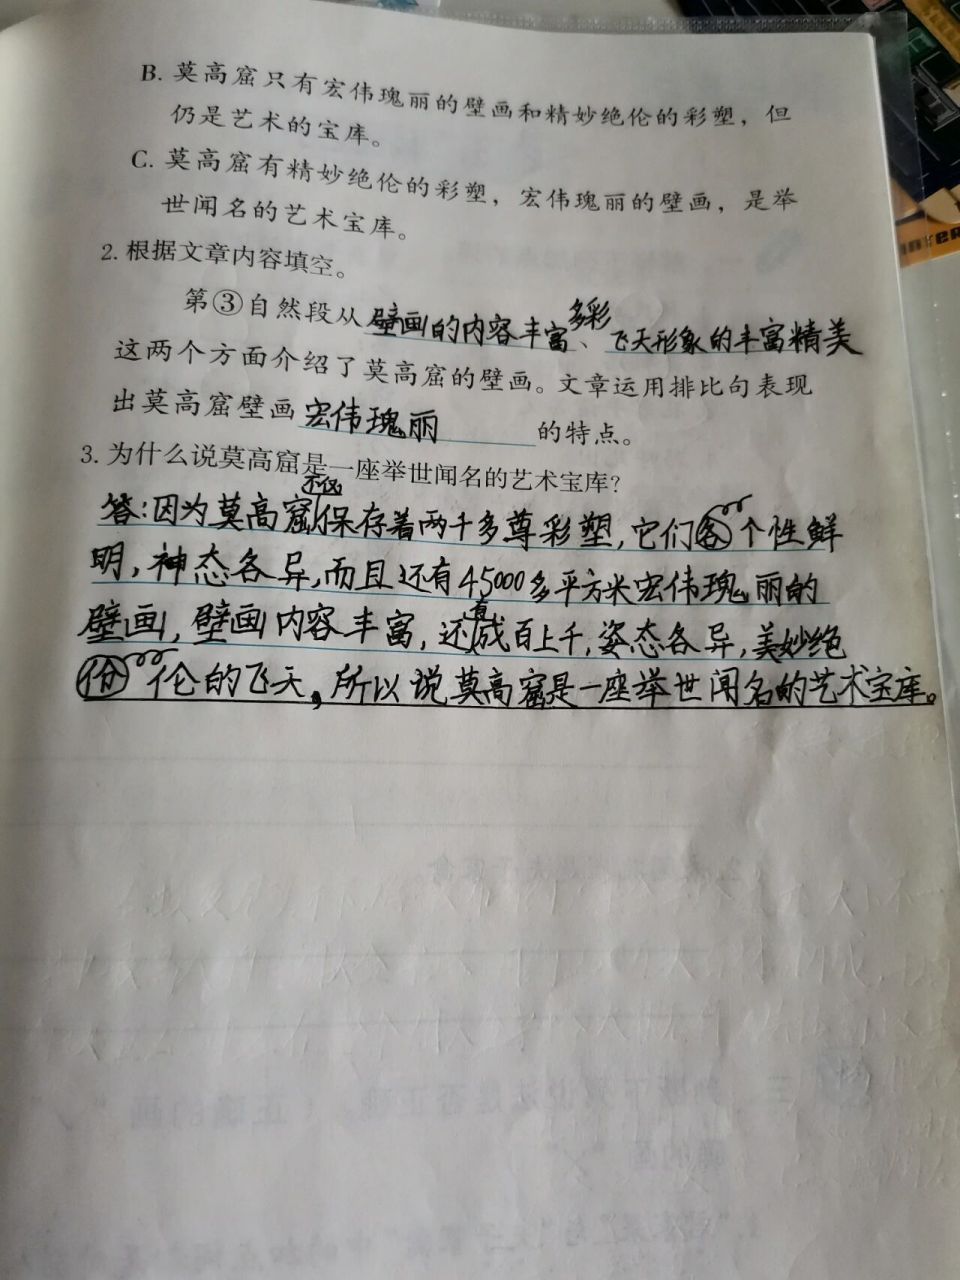 B. 莫高窟只有宏伟瑰丽的壁画和精妙绝伦的彩塑，但
仍是艺术的宝库。
C. 莫高窟有精妙绝伦的彩塑，宏伟瑰丽的壁画，是举
世闻名的艺术宝库。
2. 根据文章内容填空。
第③自然段从壁画的内容丰富多彩、飞天形象的丰富精美
这两个方面介绍了莫高窟的壁画。文章运用排比句表现
出莫高窟壁画宏伟瑰丽的特点。
3. 为什么说莫高窟是一座举世闻名的艺术宝库？
答：因为莫高窟不仅保存着两千多尊彩塑，它们个性鲜
明，神态各异，而且还有45000多平方米宏伟瑰丽的
壁画，壁画内容丰富，还有成百上千，姿态各异，美妙绝
伦的飞天，所以说莫高窟是一座举世闻名的艺术宝库。